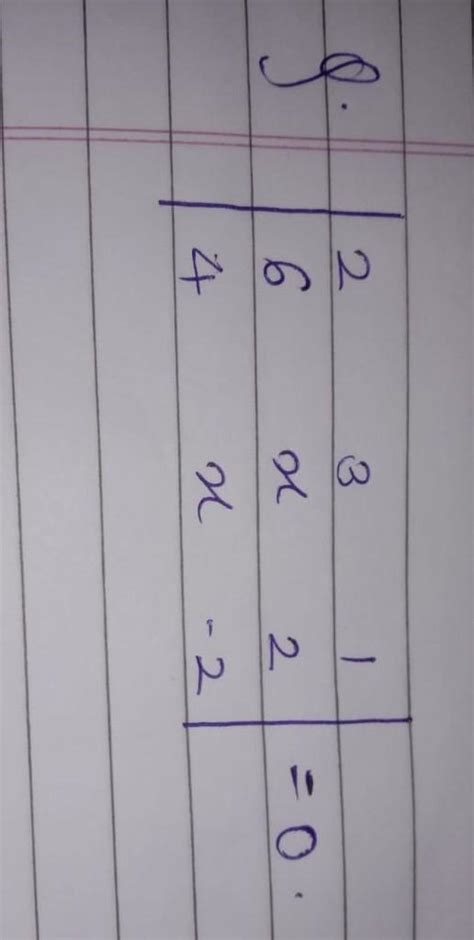 Q.
2 3 1
6 x 2 = 0.
4 x -2